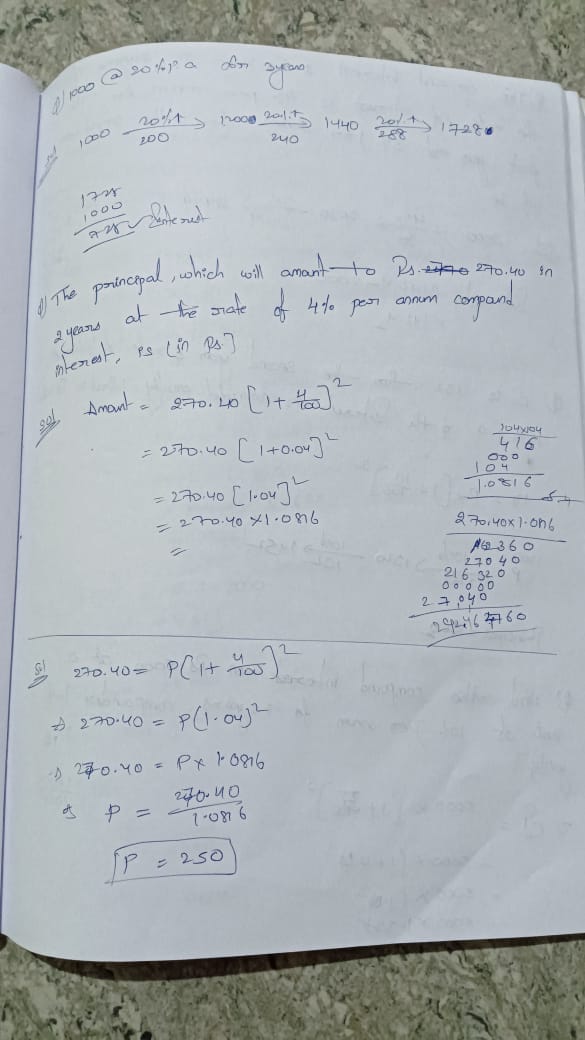 Q) 1000 @ 20% p.a for 3 years
Sol 1000 20%↑ / 200 → 1200 20%↑ / 240 → 1440 20%↑ / 288 → 1728
1728
1000
728 Interest
Q) The principal, which will amant to Rs. 270.40 in
2 years at the rate of 4% per annum compand
interest, is (in Rs.]
Sol Amant = 270.40 [1 + 4/100]²
= 270.40 [1+0.04]²
= 270.40 [1.04]²
= 270.40 × 1.0816
=
104×104
416
000
104
1.0816
270.40×1.0816
27040
216320
00000
27040
Sol 270.40 = P(1 + 4/100)²
⇒ 270.40 = P(1.04)²
⇒ 270.40 = P × 1.0816
⇒ P = 270.40 / 1.0816
P = 250